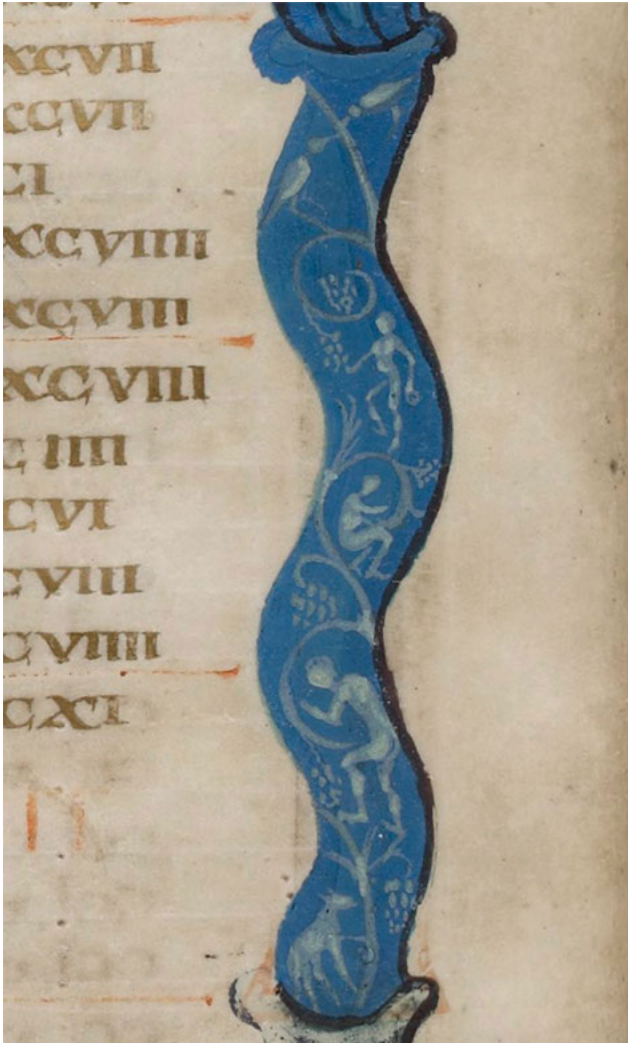 XCVII
XCVII
CI
XCVIIII
XCVIII
XCVIII
C IIII
CVI
CVIII
CVIIII
CXI